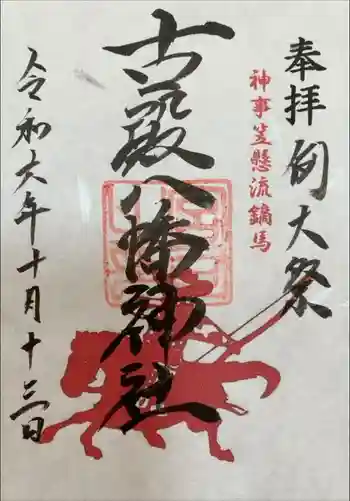 奉拝 例大祭
神事笠懸流鏑馬
古殿八幡神社
令和六年十月十三日